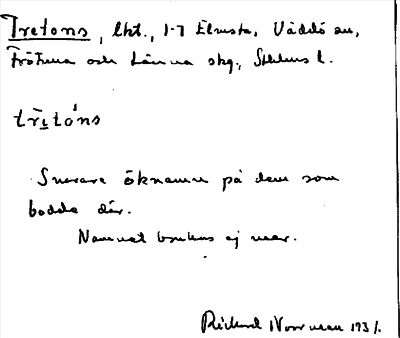 Tretons, lht., 1-7 Elmsta, Väddö sn,
Frötuna och Länna skg., Sthlms l.
trìtóns
Snarare öknamn på dem som
bodde där.
Namnet brukas ej mer.
Rickard Norrman 1931.